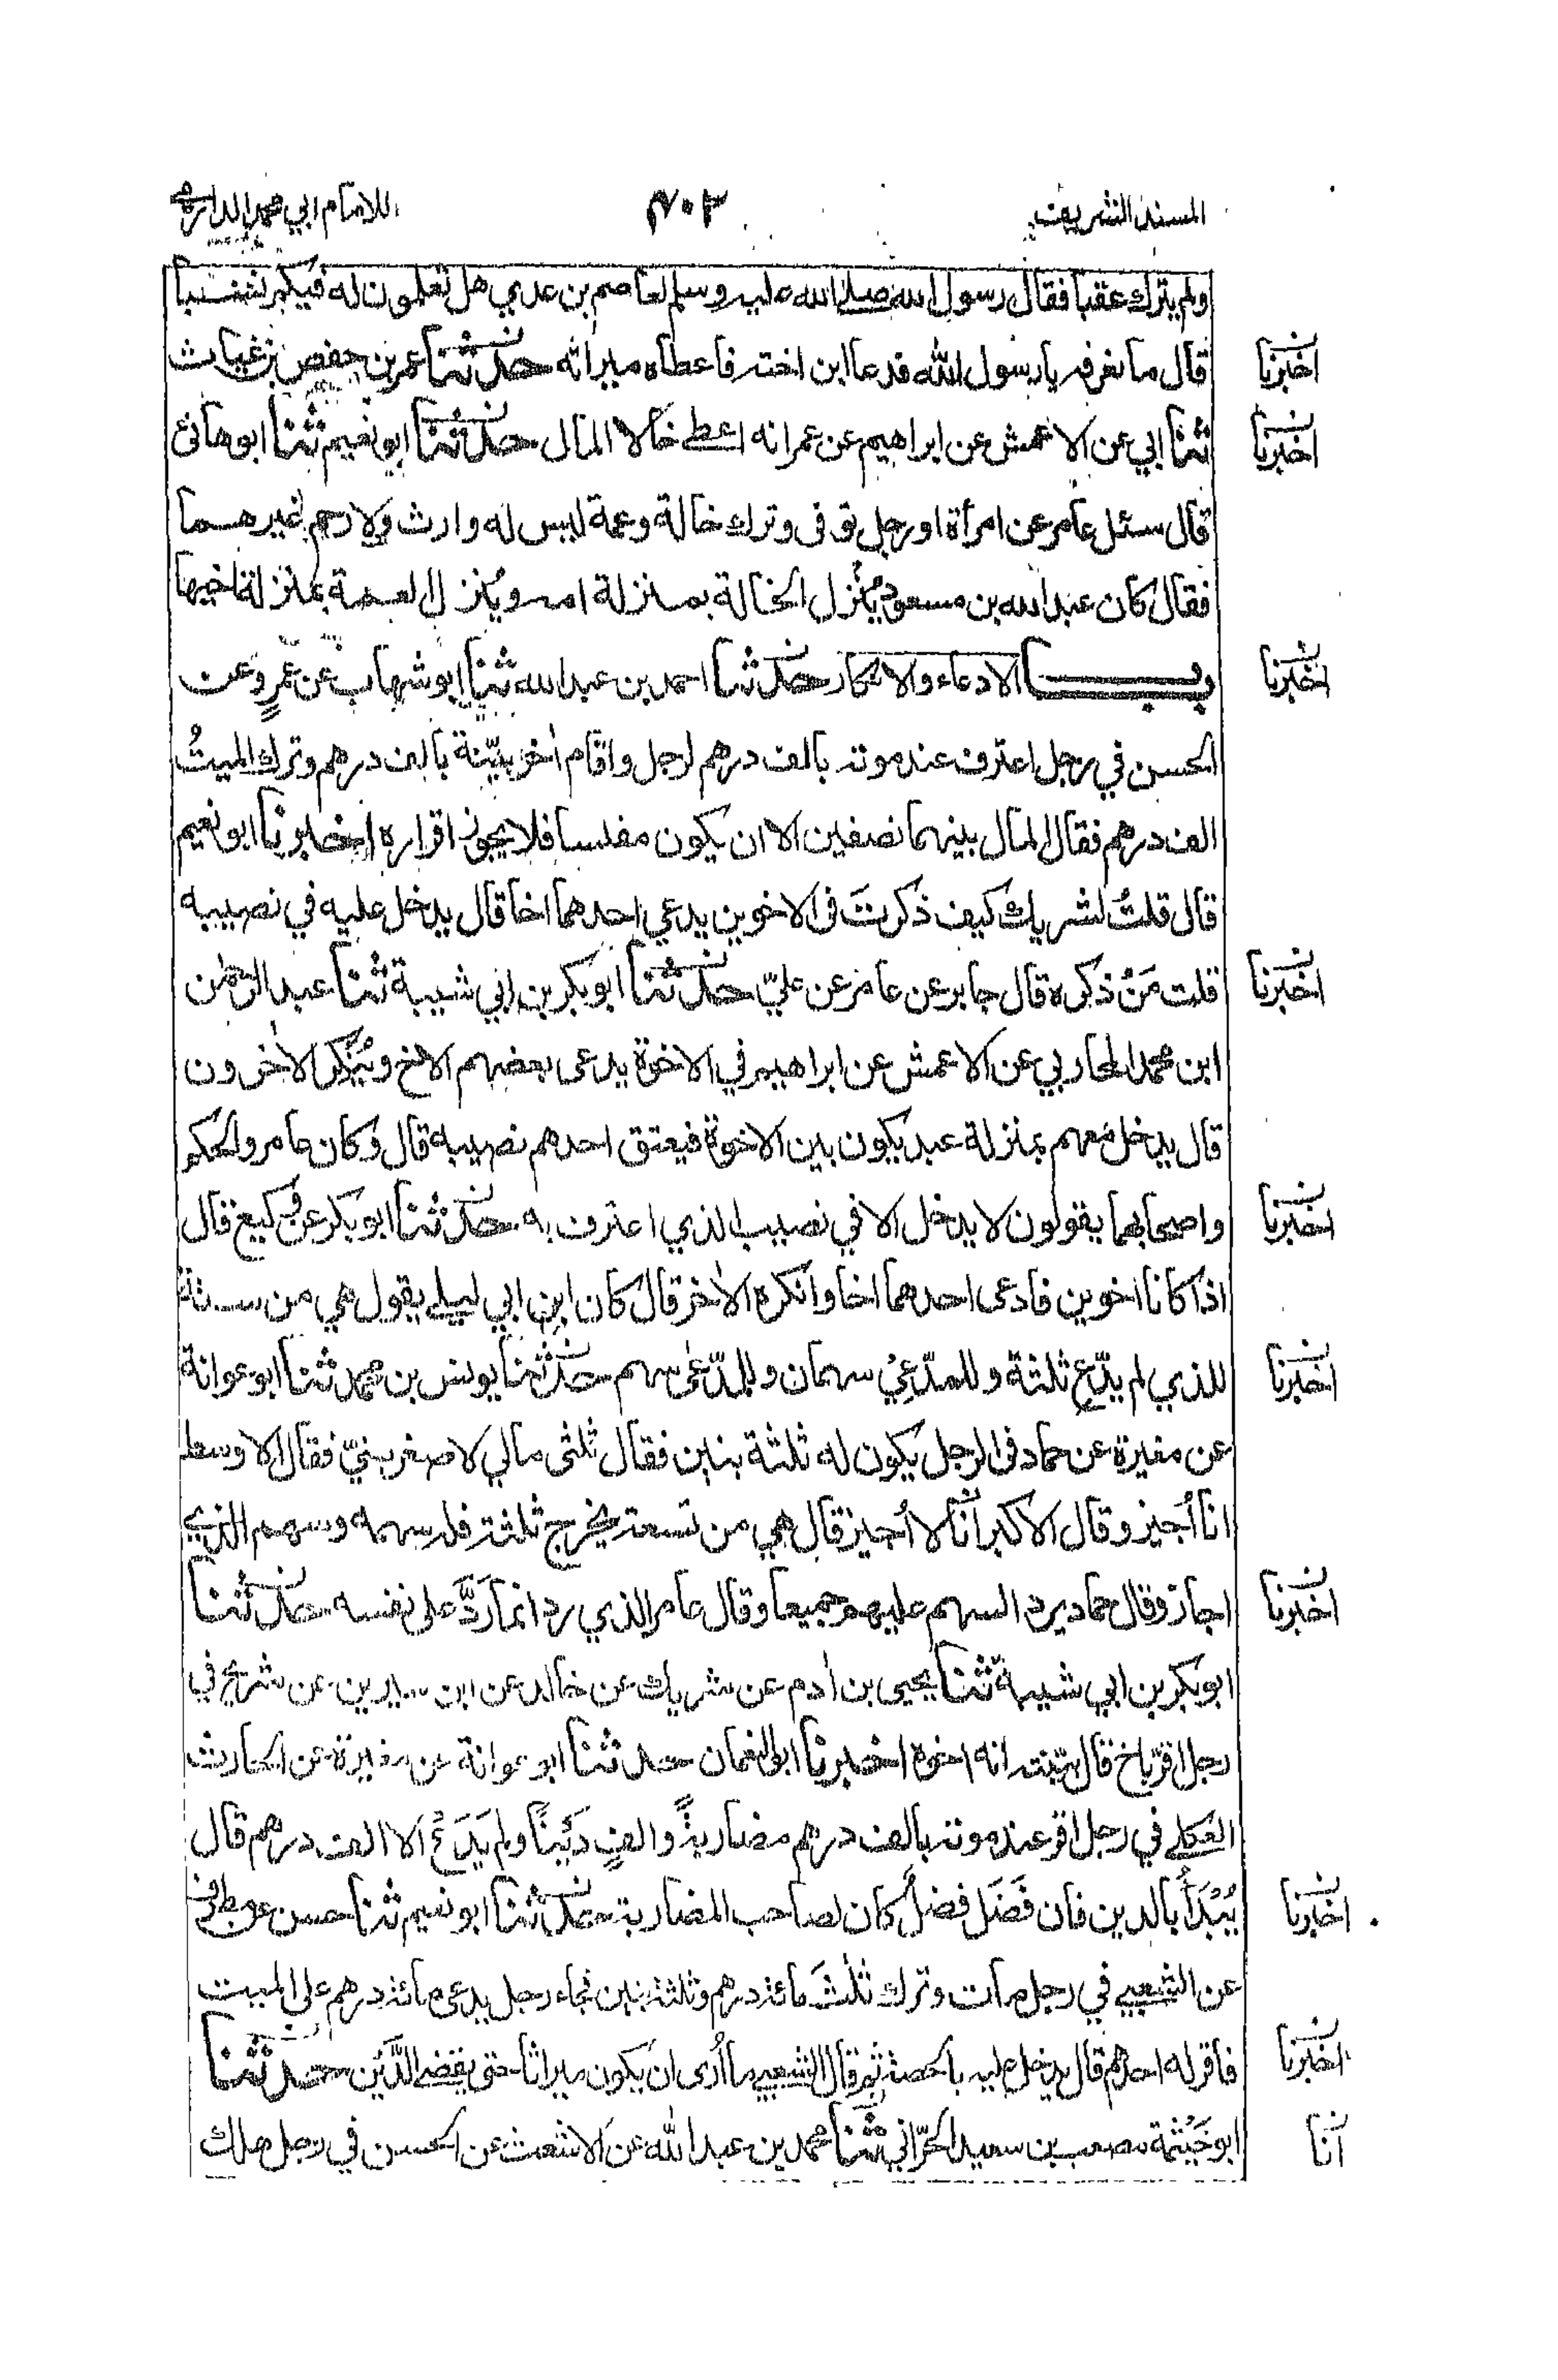 المسند الشريف ٤٠٣ للامام ابي محمد الدارمي
ولم يترك عقبا فقال رسول الله صلى الله عليه وسلم لعاصم بن عدي هل تعلمون له فيكم نسبا
اخبرنا قال ما نعرفه يا رسول الله فدعا ابن اخته فاعطاه ميراثه حدثنا عمر بن حفص بن غياث
اخبرنا ثنا ابي عن الاعمش عن ابراهيم عن عمر انه اعطى خالا المال حدثنا ابو نعيم ثنا ابو هانئ
قال سئل عامر عن امرأة او رجل توفى وترك خالة وعمة ليس له وارث ولا رحم غيرهما
فقال كان عبد الله بن مسعود يُنزل الخالة بمنزلة امه ويُنزل العمة بمنزلة اخيها
اخبرنا باب الادعاء والانكار حدثنا احمد بن عبد الله ثنا ابو شهاب عن عمرٍو عن
الحسن في رجل اعترف عند موته بالف درهم لرجل واقام اٰخر بيّنة بالف درهم وترك الميتُ
الف درهم فقال المال بينهما نصفين الا ان يكون مفلسا فلا يجوز اقراره اخبرنا ابو نعيم
قال قلتُ لشريك كيف ذكرتَ فى الاخوين يدعي احدهما اخا قال يدخل عليه في نصيبه
اخبرنا قلت مَنْ ذكره قال جابر عن عامر عن عليّ حدثنا ابو بكر بن ابي شيبة ثنا عبد الرحمٰن
ابن محمد المحاربي عن الاعمش عن ابراهيم في الاخوة يدعى بعضهم الاخ ويُنكر الاٰخرون
قال يدخل معهم بمنزلة عبد يكون بين الاخوة فيعتق احدهم نصيبه قال وكان عامر والحكم
اخبرنا واصحابهما يقولون لا يدخل الا في نصيب الذي اعترف به حدثنا ابو بكر عن وكيع قال
اذا كانا اخوين فادعى احدهما اخا وانكره الاٰخر قال كان ابن ابي ليلى يقول هي من ستة
اخبرنا للذي لم يدّع ثلثة وللمدّعِيْ سهمان وللمدّعٰى سهم حدثنا يونس بن محمد ثنا ابو عوانة
عن مغيرة عن حماد فى الرجل يكون له ثلثة بنين فقال ثلثى مالي لاصغر بنيّ فقال الاوسط
انا أُجيز وقال الاكبر انا لا أُجيز قال هي من تسعة يخرج ثلثة فله سهمه وسهم الذي
اخبرنا اجاز وقال حماد يرد السهم عليهم جميعا وقال عامر الذي رد انما رَدَّ على نفسه حدثنا
ابو بكر بن ابي شيبة ثنا يحيى بن اٰدم عن شريك عن خالد عن ابن سيرين عن شريح في
رجل اقرّ باخ قال بيّنته انه اخوه اخبرنا ابو النعمان حدثنا ابو عوانة عن مغيرة عن الحارث
العكلى في رجل اقر عند موته بالف درهم مضاربةً والفٍ دَيْنًا ولم يَدَعْ الا الف درهم قال
اخبرنا يُبْدَأُ بالدين فان فَضَل فضلٌ كان لصاحب المضاربة حدثنا ابو نعيم ثنا حسن عن مطرف
عن الشعبي في رجل مات وترك ثلٰثَ مائة درهم وثلثة بنين فجاء رجل يدعى مائة درهم على الميت
اخبرنا فاقر له احدهم قال يدخل عليه بالحصة ثم قال الشعبي ما أُرى ان يكون ميراثا حتى يقضى الدَّين حدثنا
انا ابو خَيْثمة مصعب بن سعيد الحرّاني ثنا محمد بن عبد الله عن الاشعث عن الحسن في رجل هلك